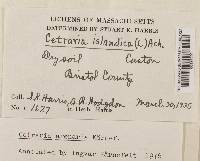 LICHENS OF MASSACHUSETTS
DETERMINED BY STUART K. HARRIS
Cetraria islandica (L.) Ach.
Dry soil Easton
Bristol County
Coll. S.K. Harris, A.R. Hodgdon March 30, 1935
No. 1627 in Herb. Harris
Cetraria arenaria Kärnef.
Annotated by Ingvar Kärnefelt 1976